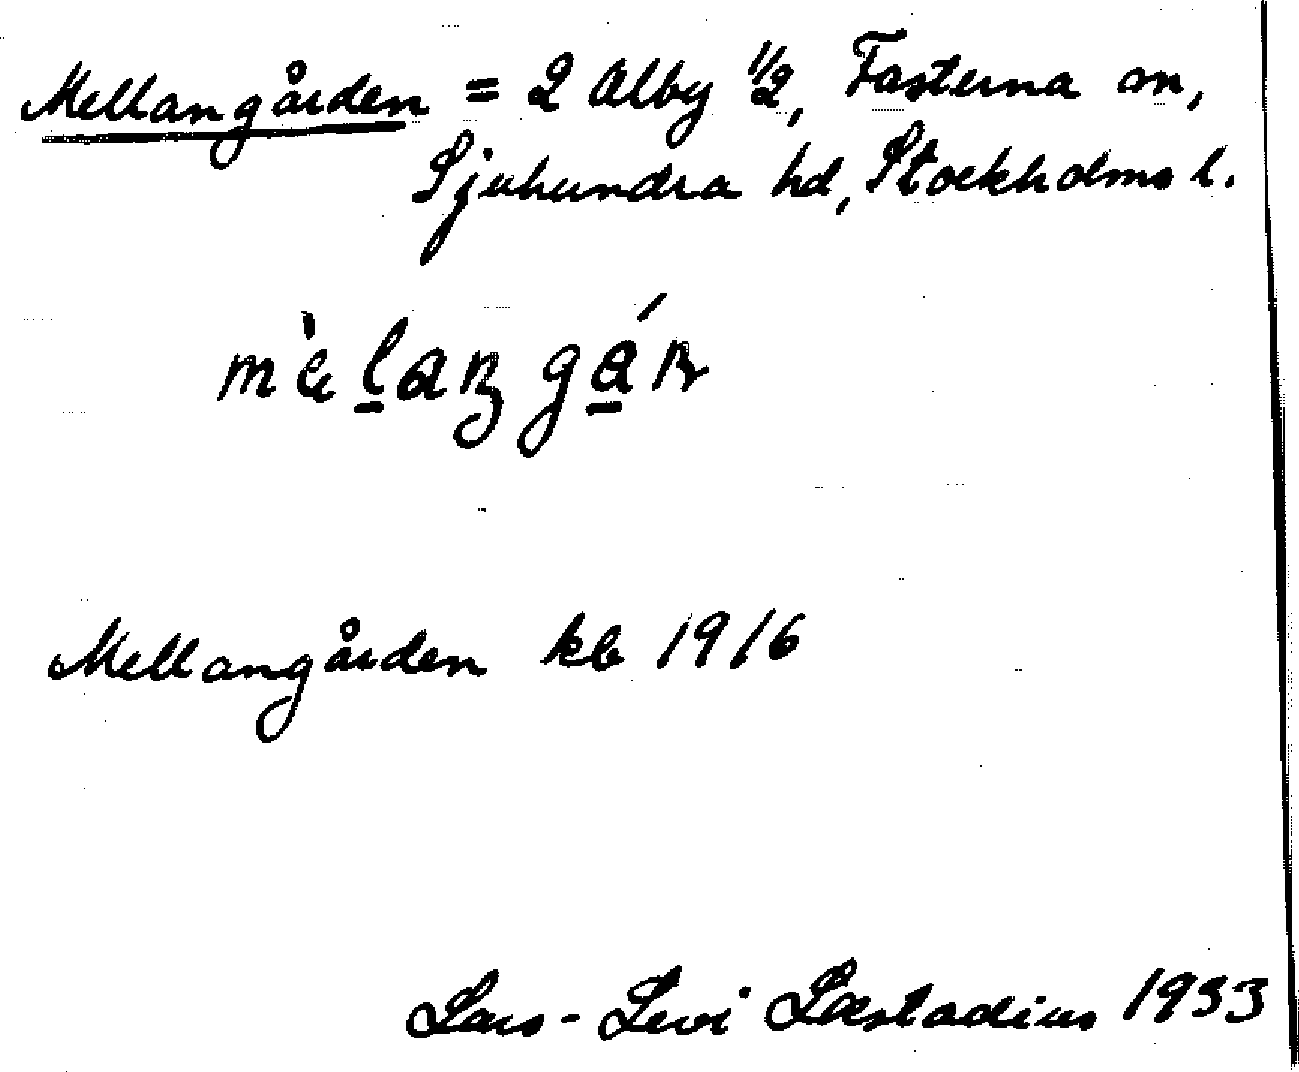 Mellangården = 2 Alby 1/2, Fasterna sn,
Sjuhundra hd, Stockholms l.
Mellangården kb 1916
Lars-Levi Læstadius 1933